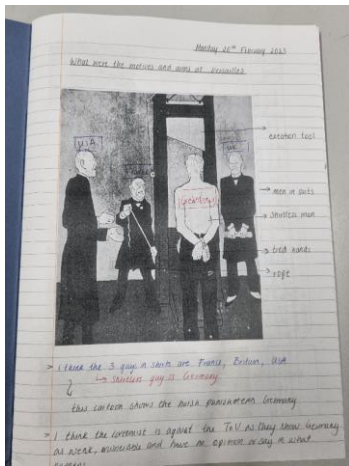 Monday 20th February 2023
What were the motives and aims at Versailles
USA
Germany
execution tool
men in suits
shirtless man
tied hands
rope
> I think the 3 guys in shirts are France, Britain, USA
↳ shirtless guy is Germany
this cartoon shows the harsh punishment Germany
> I think the cartoonist is against the ToV as they show Germany
as weak, miserable and have no opinion or say in what